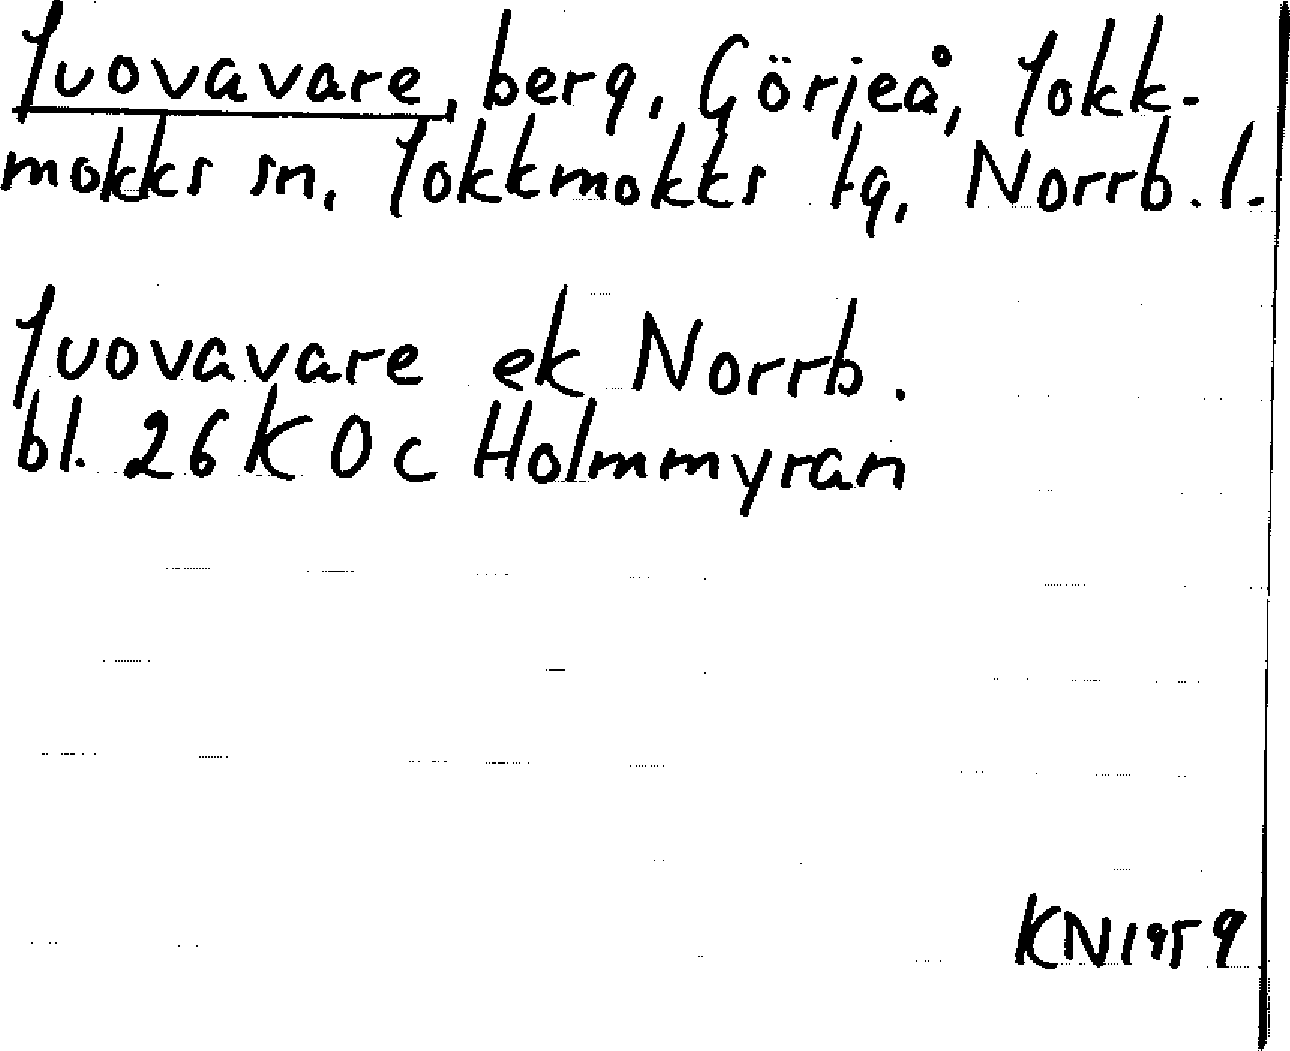 Juovavare, berg, Görjeå, Jokk-
mokks sn, Jokkmokks tg, Norrb. l.
Juovavare ek Norrb.
bl. 26K 0c Holmmyran
KN1959